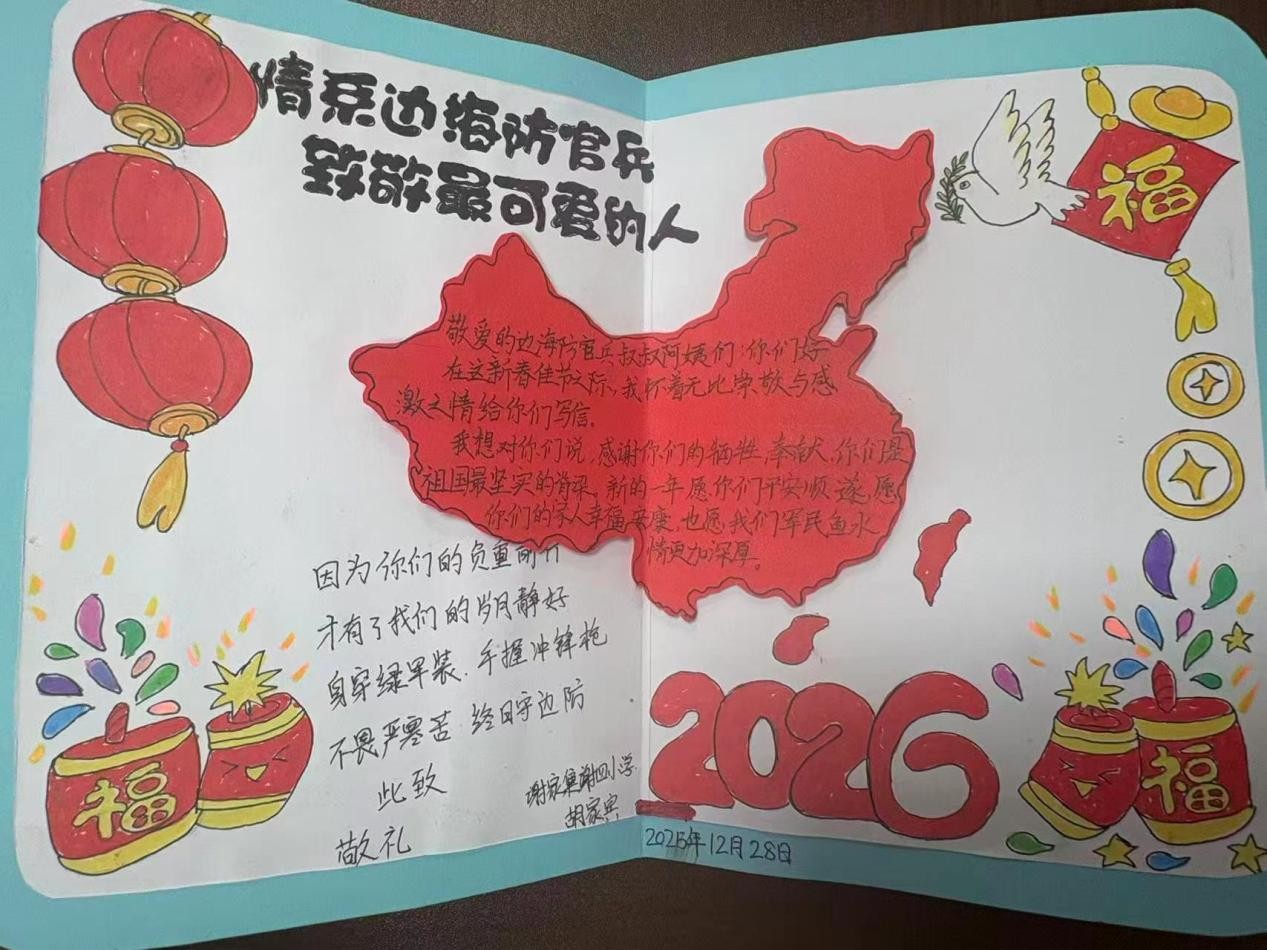 情系边海防官兵
致敬最可爱的人
福
敬爱的边海防官兵叔叔阿姨们:你们好
在这新春佳节之际,我怀着无比崇敬与感
激之情给你们写信。
我想对你们说,感谢你们的牺牲、奉献,你们是
祖国最坚实的脊梁。新的一年愿你们平安顺遂,愿
你们的家人幸福安康,也愿我们军民鱼水
情更加深厚。
因为你们的负重前行
才有了我们的岁月静好
身穿绿军装、手握冲锋枪
不畏严寒苦、终日守边防
此致
敬礼
谢家集谢四小学
胡家宾
2026
2025年12月28日
福
福